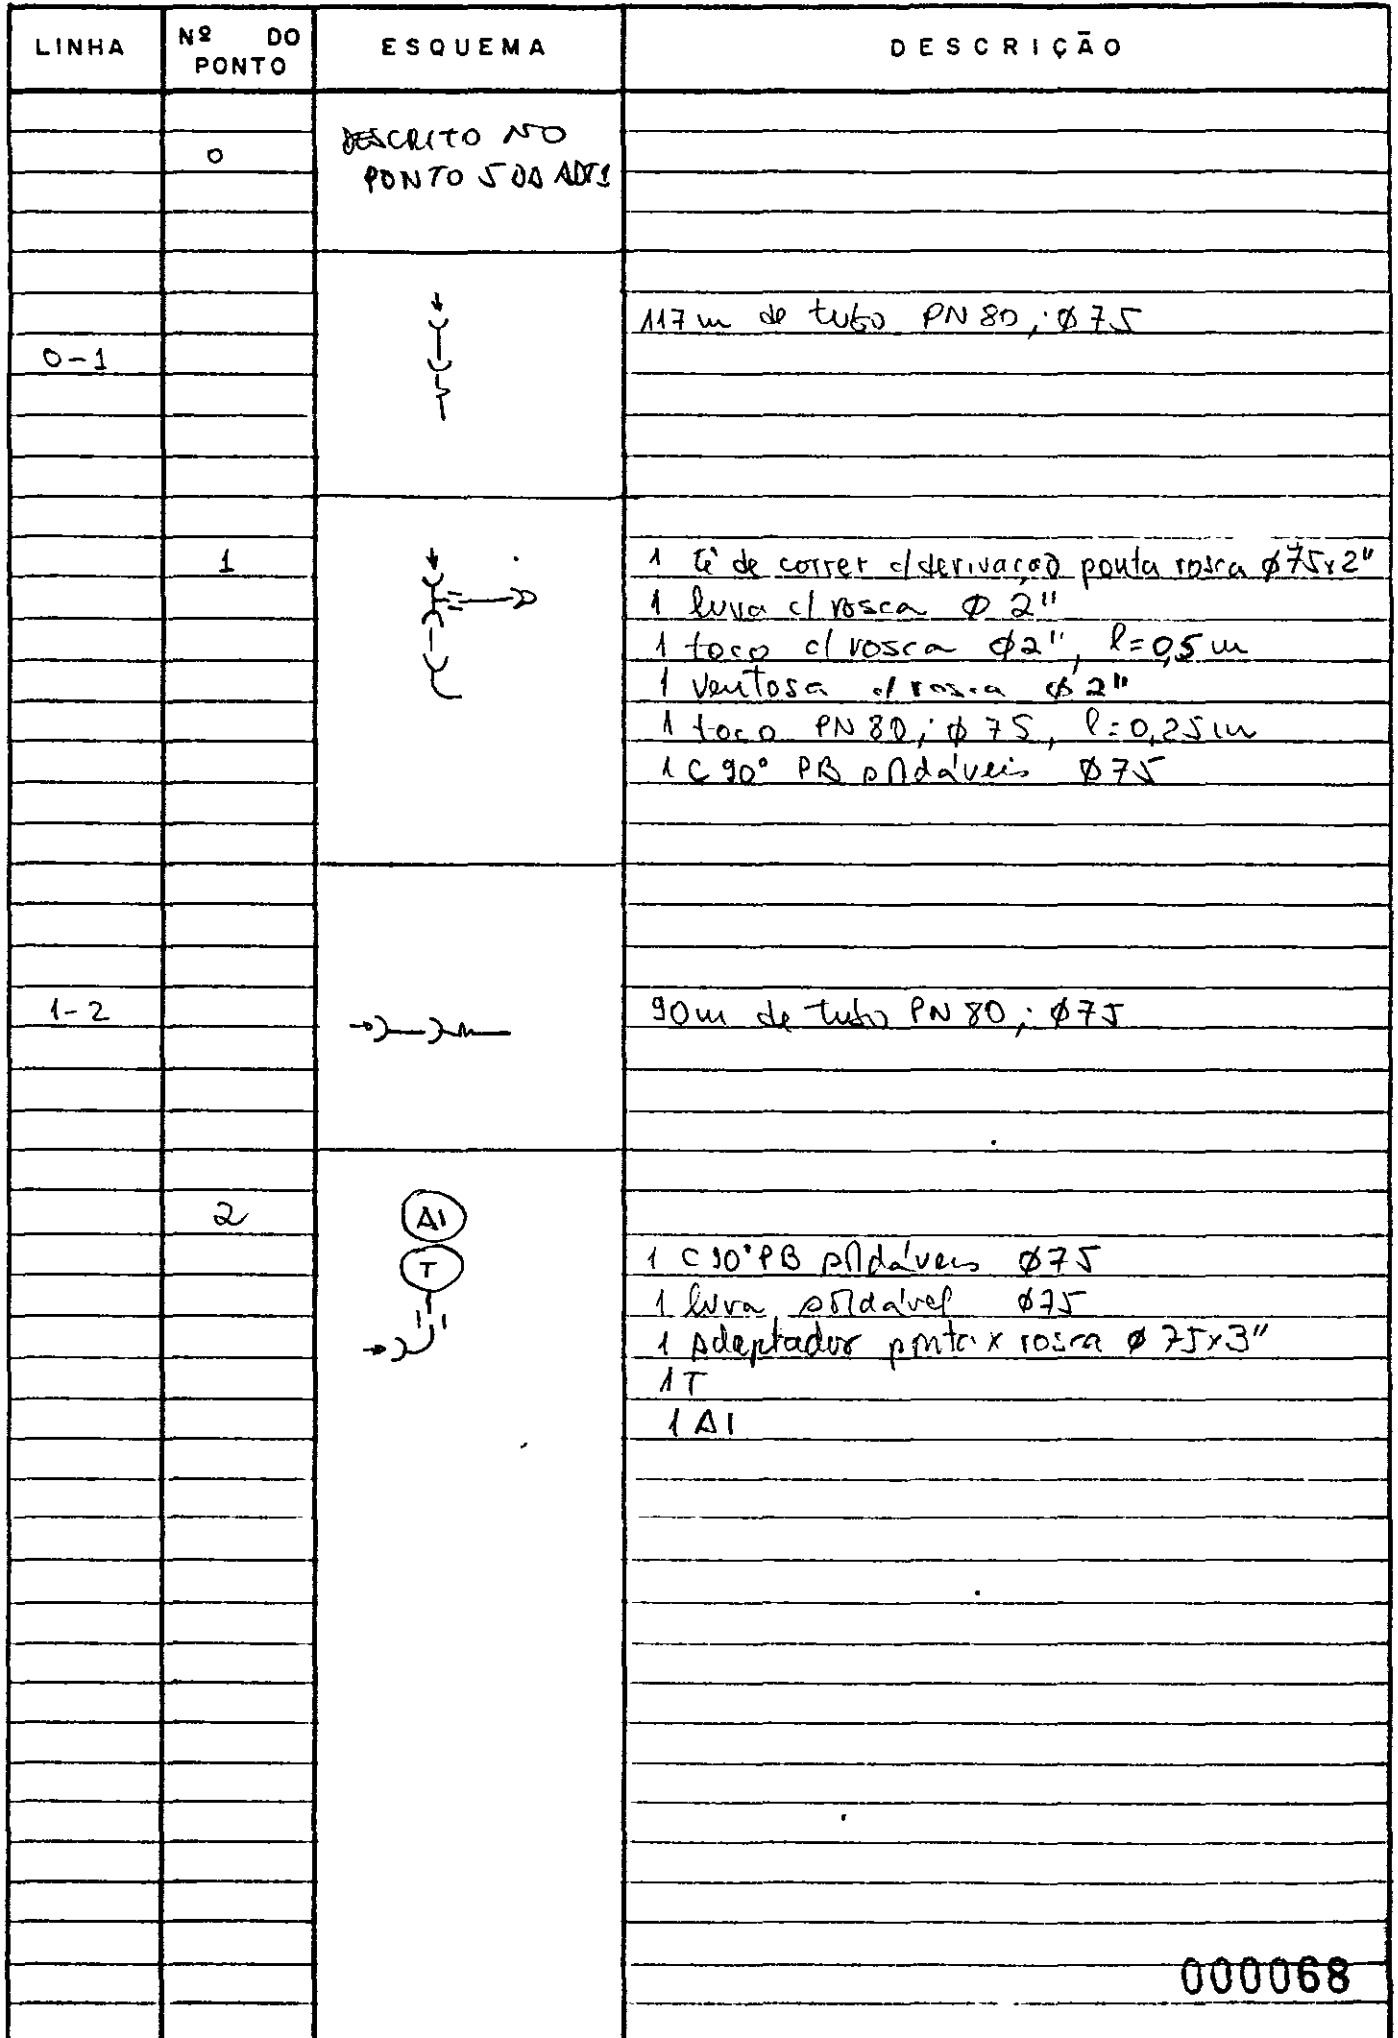 LINHA
Nº DO
PONTO
ESQUEMA
DESCRIÇÃO
0
DESCRITO NO
PONTO 5 DA ADT1
0-1
117 m de tubo PN 80; Ø 75
1
1 tê de correr c/derivação ponta rosca Ø75x2"
1 luva c/ rosca Ø 2"
1 toco c/ rosca Ø2", l=0,5 m
1 ventosa c/ rosca Ø 2"
1 toco PN 80; Ø 75, l=0,25 m
1 C 90° PB soldáveis Ø75
1-2
90m de tubo PN 80; Ø75
2
AI
T
1 C 90° PB soldáveis Ø75
1 luva soldável Ø75
1 Adaptador ponta x rosca Ø 75x3"
1 T
1 AI
000068